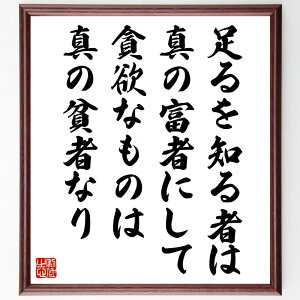 足るを知る者は
真の富者にして
貪欲なものは
真の貧者なり